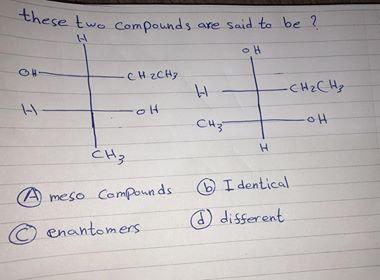 these two compounds are said to be ?
H
OH
CH2CH3
H
OH
CH3
OH
H
CH2CH3
CH3
OH
H
A meso compounds
b Identical
C enantomers
d different